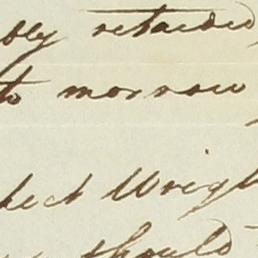 bly retarded
to morrow
pect Wrigh
should